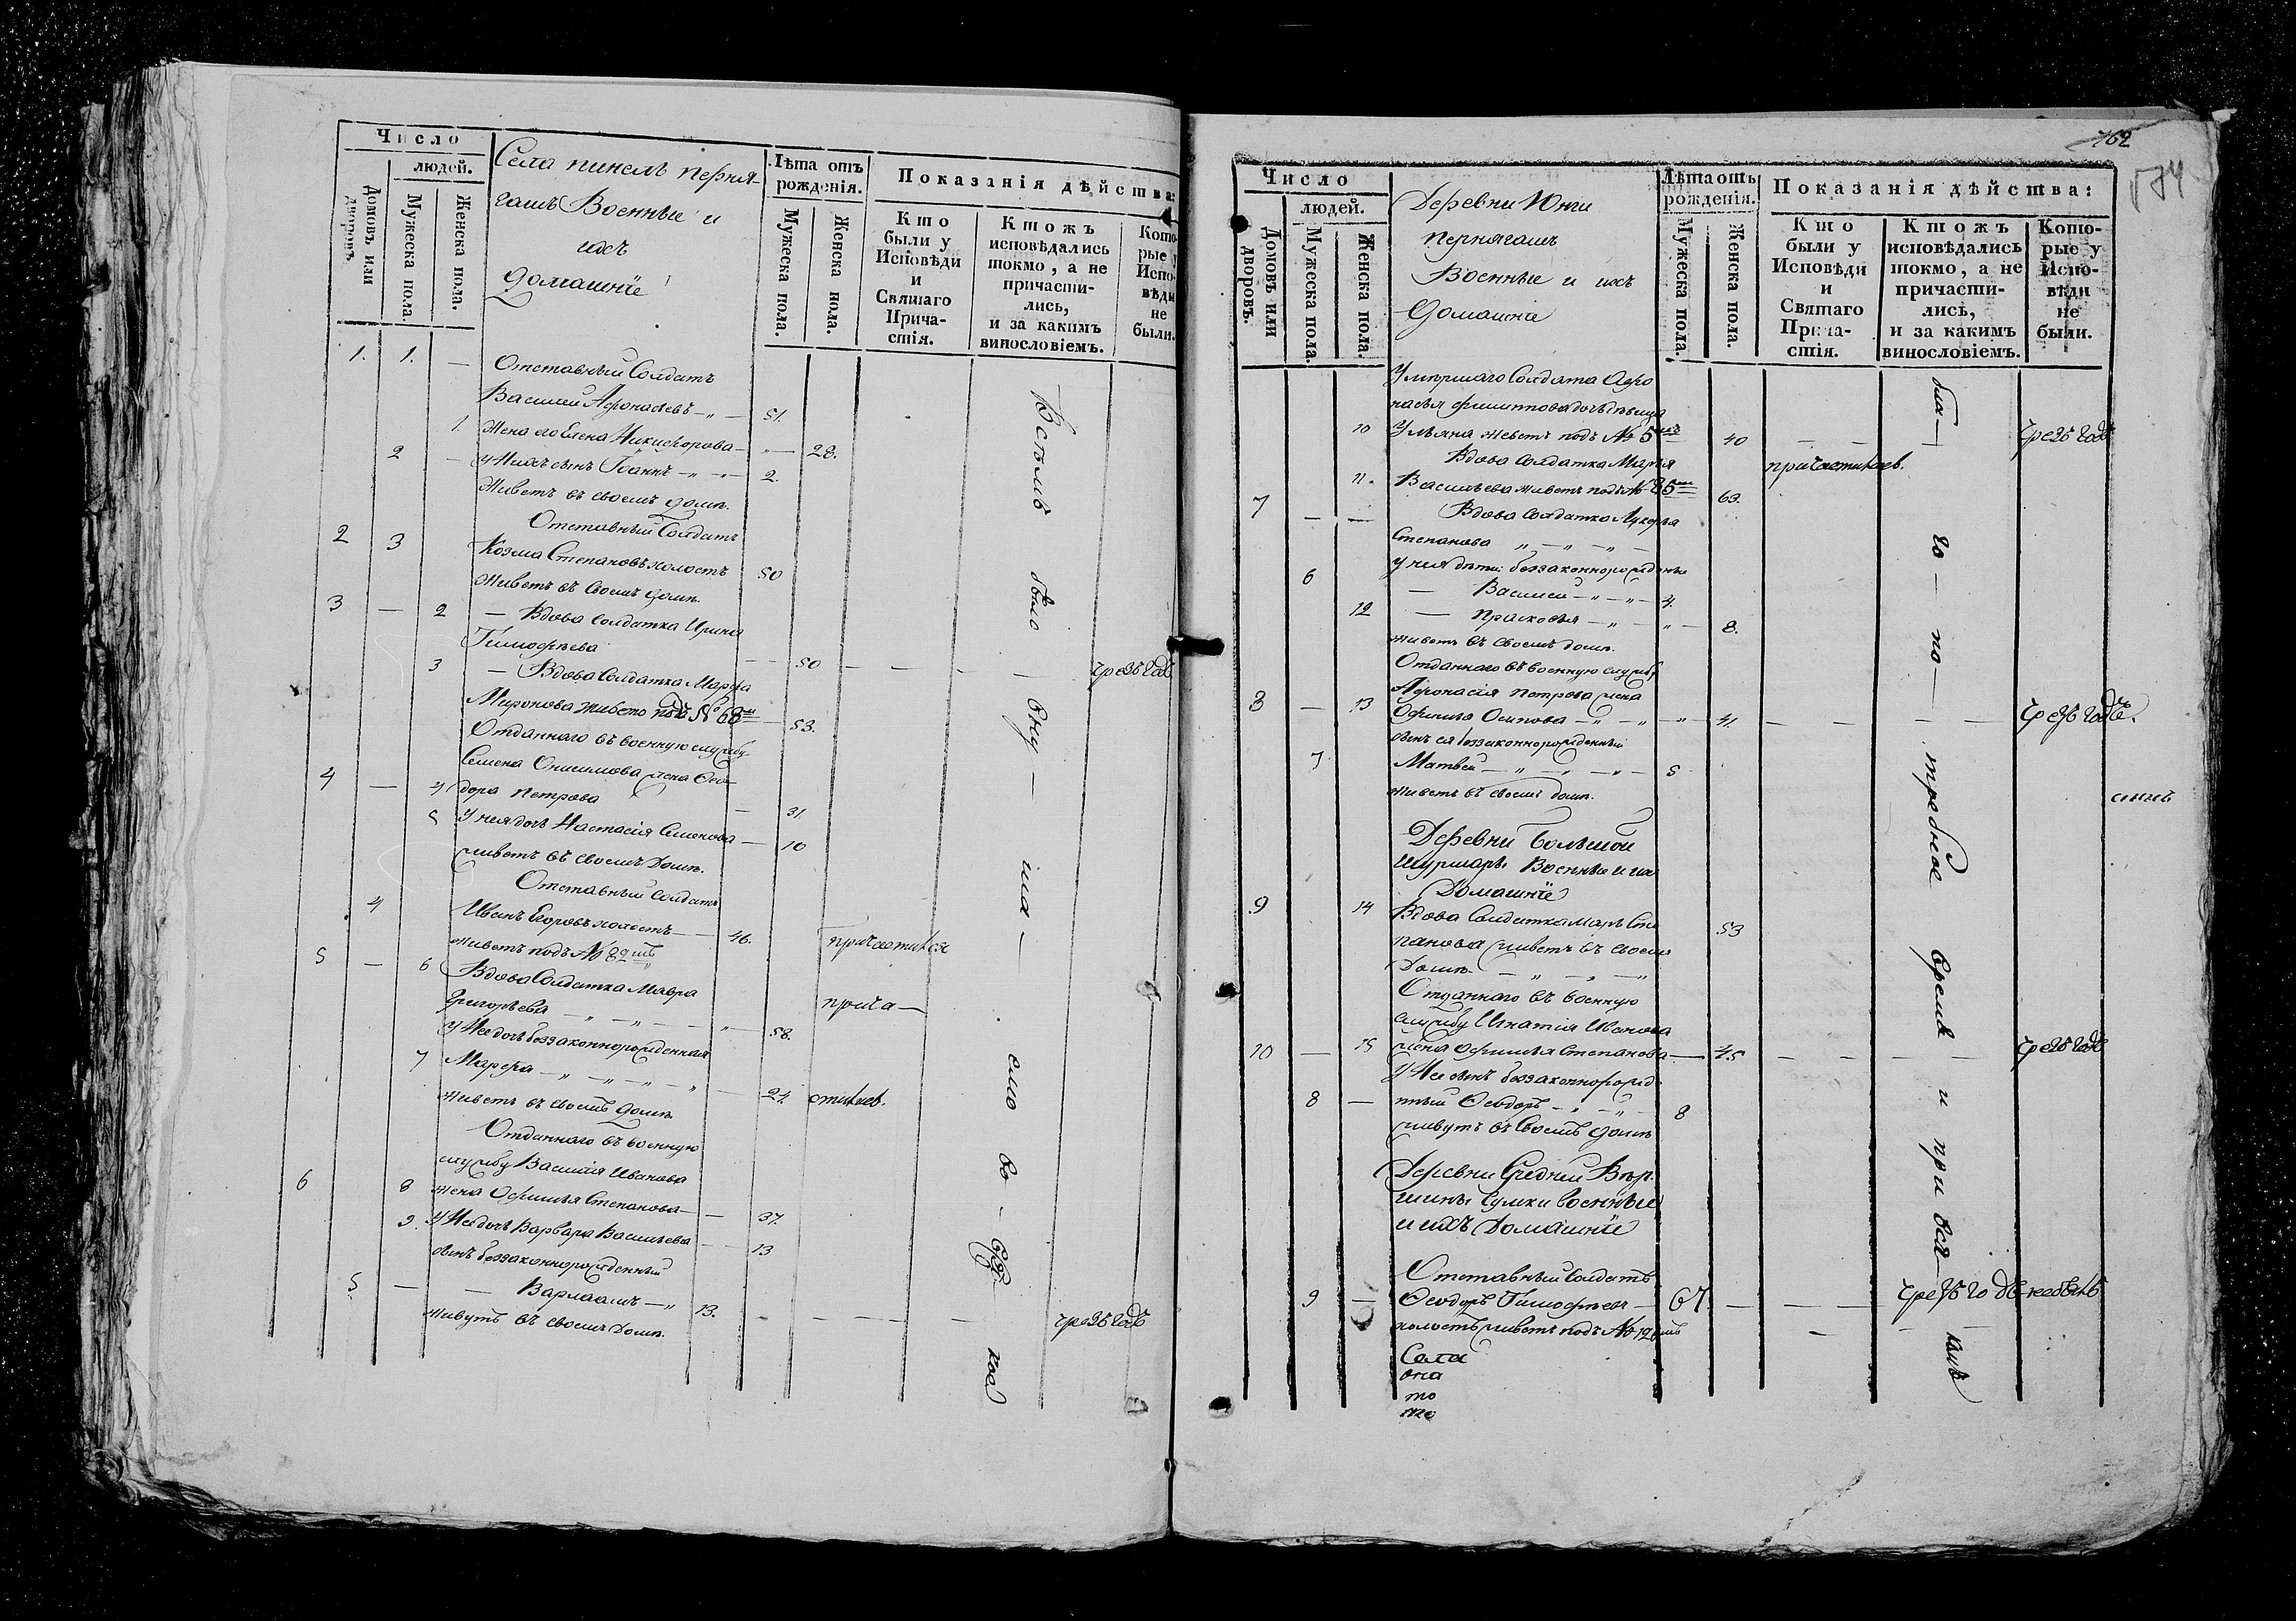 Число
людей.
Домовъ или дворовъ.
Мужеска пола.
Женска пола.
Села пинель перня-
гашъ Военные и
ихъ
домашніе
Лѣта отъ
рожденія.
Мужеска пола.
Женска пола.
Показанія дѣйства:
Кто
были у
Исповѣди
и
Святаго
Прича-
стія.
Ктожъ
исповѣдались
токмо, а не
причасти-
лись,
и за какимъ
винословіемъ.
Кото-
рые у
Испо-
вѣди
не
были.
1. 1. — Отставный Солдатъ
Василий Афонасьевъ — 51.
1. жена его Елена Никифорова — 28.
2 — у Нихъ сынъ Іоаннъ — 2.
Живетъ въ своемъ домѣ.
Отставный Солдатъ
2 3 Козма Степановъ холостъ 50
Живетъ въ Своемъ домѣ.
3 — 2 — Вдова Солдатка Ирина
Тимофѣева — 50 — — — чрезъ годъ
3 — Вдова Солдатка Марфа
Миронова живетъ подъ № 68мъ — 53.
Отданнаго въ военную службу
Семена Онисимова жена Фео-
4 — 4 дора Петрова — 31
5 У нея дочь Настасія Семенова — 10
живетъ въ своемъ Домѣ.
Отставный Солдатъ
4 Иванъ Егоровъ холостъ — 46. причастился
живетъ подъ № 82мъ
5 — 6 Вдова Солдатка Мавра
Григорьева — 58. прича—
У Нее дочь беззаконнорожденная
7 Марфа — 24 стились.
живетъ въ своемъ домѣ.
Отданнаго въ военную
службу Василія Иванова
6 8 жена Офимья Степанова — 37.
9. У Нее дочь Варвара Васильева — 13
сынъ беззаконнорожденный
5 — — Варлаамъ — 13. — — — — чрезъ годъ
живутъ въ своемъ Домѣ.
Всѣмъ было вну — ша — емо во — вре кое
762
174
Число
людей.
Домовъ или дворовъ.
Мужеска пола.
Женска пола.
Деревни Юнги
пернягашъ
Военные и ихъ
Домашніе
Лѣта отъ
рожденія.
Мужеска пола.
Женска пола.
Показанія дѣйства:
Кто
были у
Исповѣди
и
Святаго
Прича-
стія.
Ктожъ
исповѣдались
токмо, а не
причасти-
лись,
и за какимъ
винословіемъ.
Кото-
рые у
Испо-
вѣди
не
были.
Умершаго Солдата Афо
насья Филиппова дочь дѣвица
10 Ульяна живетъ подъ № 5мъ 40 — — чрезъ годъ
Вдова Солдатка Марья причастилась.
11. Васильева живетъ подъ № 85мъ 63.
7 — — Вдова Солдатка Лукерья
Степанова — — —
у нея дѣти: беззаконнорожденные
6 — Василей — 4.
12 — Прасковья — 8.
живетъ въ своемъ домѣ.
Отданнаго въ военную службу
Афонасія Петрова жена
8 — 13 Офимья Осипова — 41. — — — — чрезъ годъ.
сынъ ея беззаконнорожденный
7 Матвей — 5
живетъ въ своемъ домѣ.
Деревни большой
шурмаръ Военные и ихъ
Домашніе
9 14 Вдова Солдатка Марья Сте
панова живетъ въ своемъ 53
Домѣ — — —
Отданнаго въ военную
службу Игнатія Иванова
10 — 15 жена Офимья Степанова — 45 — — — — чрезъ годъ
У Нее сынъ беззаконнорожд
8 — нный Феодоръ — 8
живутъ въ Своемъ домѣ
Деревни Средней Вер
шины Сумки военные
и ихъ Домашніе
Отставный Солдатъ
9 — Феодоръ Тимофеевъ — 67. — — — чрезъ годъ небылъ
холостъ живетъ подъ № 126мъ
Села
она
то
то
бла— го — по — требное время и при вся— комъ